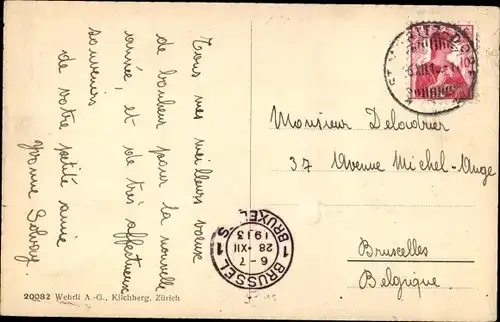 Tous mes meilleurs voeux
de bonheur pour la nouvelle
année, et de très affectueux
souvenirs
de votre petite amie
Yvonne Solvay.
ST. MORITZ DORF
10
Monsieur Deladrier
37 Avenue Michel-Ange
Bruxelles
Belgique.
1 BRUSSEL 1
6-7
28 XII
1913
BRUXELLES
20082 Wehrli A.-G., Kilchberg, Zürich